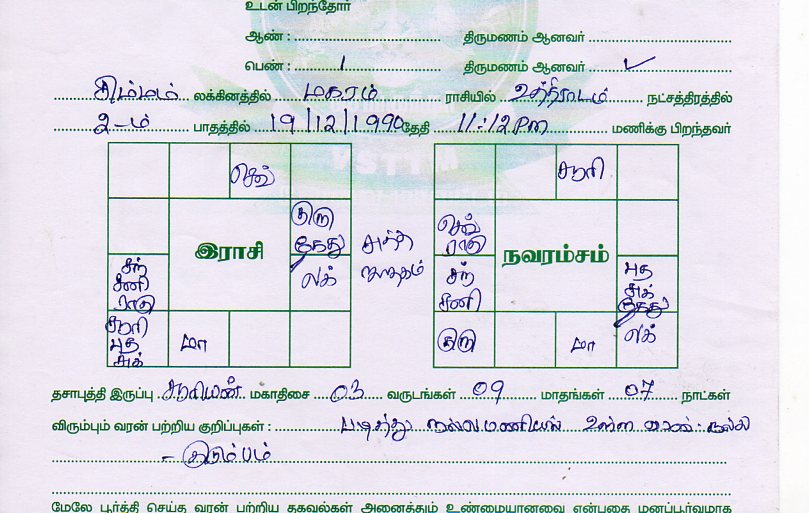 உடன் பிறந்தோர்
ஆண் : ........ திருமணம் ஆனவர் ........
பெண் : 1 திருமணம் ஆனவர் ✓
சிம்மம் லக்கினத்தில் மகரம் ராசியில் உத்திராடம் நட்சத்திரத்தில்
2-ம் பாதத்தில் 19/12/1990 தேதி 11:12 PM மணிக்கு பிறந்தவர்
செவ் சூரி
குரு கேது செவ் ராகு
இராசி சுத்த ஜாதகம் நவரம்சம்
சந் சனி ராகு லக் சந் சனி புத சுக் கேது
சூரி புத சுக் மா குரு மா லக்
தசாபுத்தி இருப்பு சூரியன் மகாதிசை 03 வருடங்கள் 09 மாதங்கள் 07 நாட்கள்
விரும்பும் வரன் பற்றிய குறிப்புகள் : படித்து நல்ல பணியில் உள்ள வரன். நல்ல
- குடும்பம்
மேலே பூர்த்தி செய்த வரன் பற்றிய தகவல்கள் அனைத்தும் உண்மையானவை என்பதை மனப்பூர்வமாக